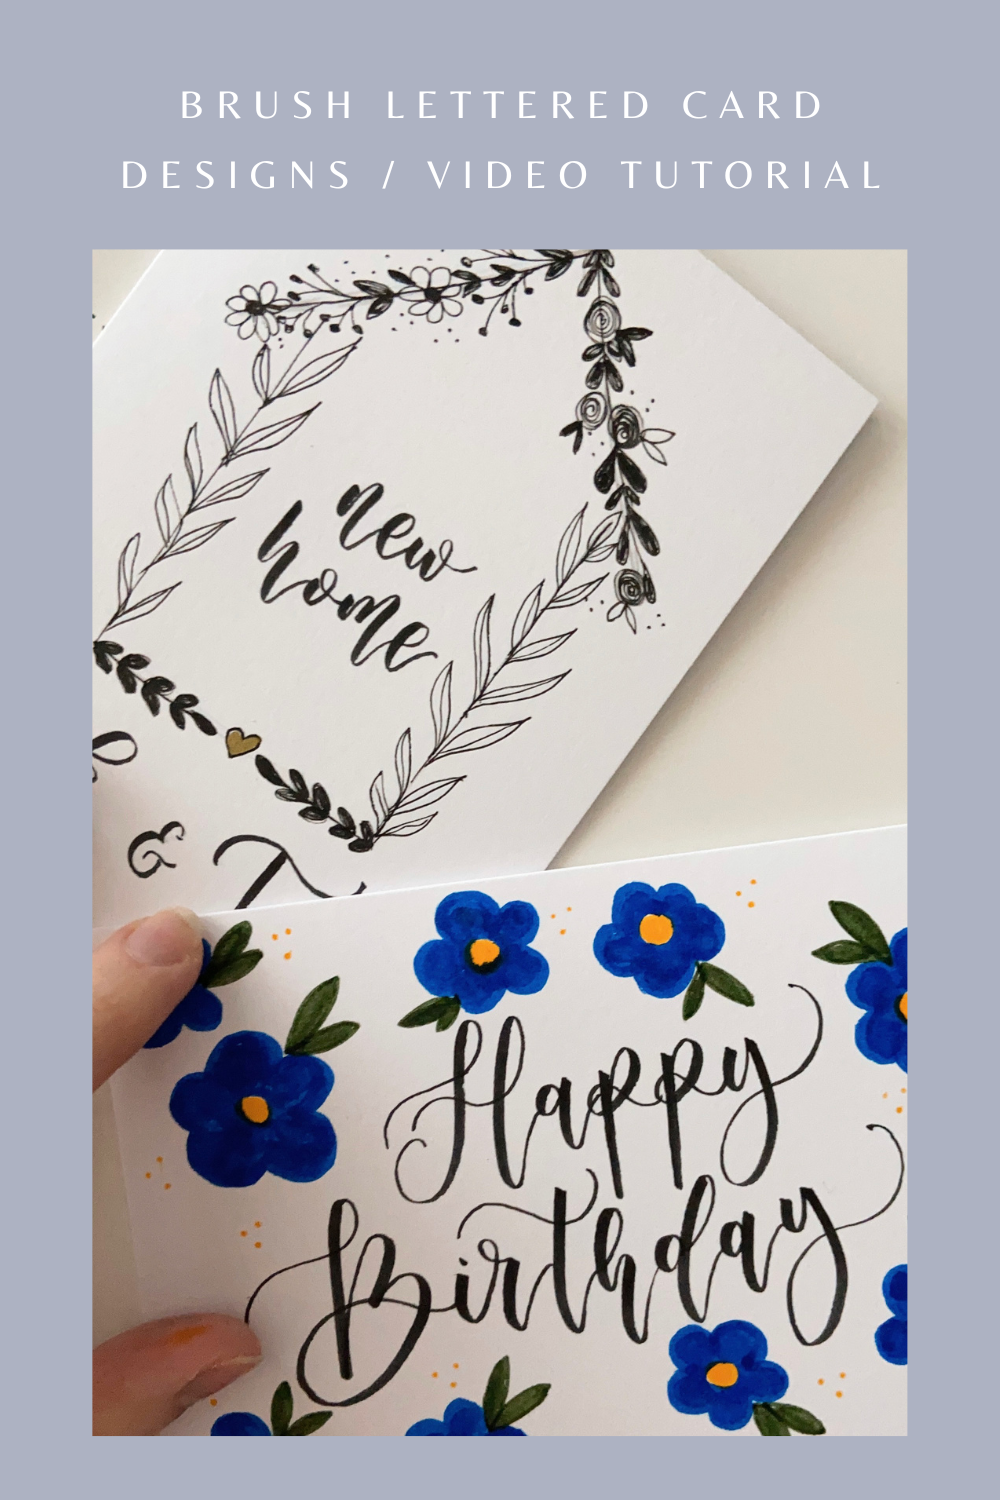 BRUSH LETTERED CARD
DESIGNS / VIDEO TUTORIAL
new
home
& T
Happy
Birthday